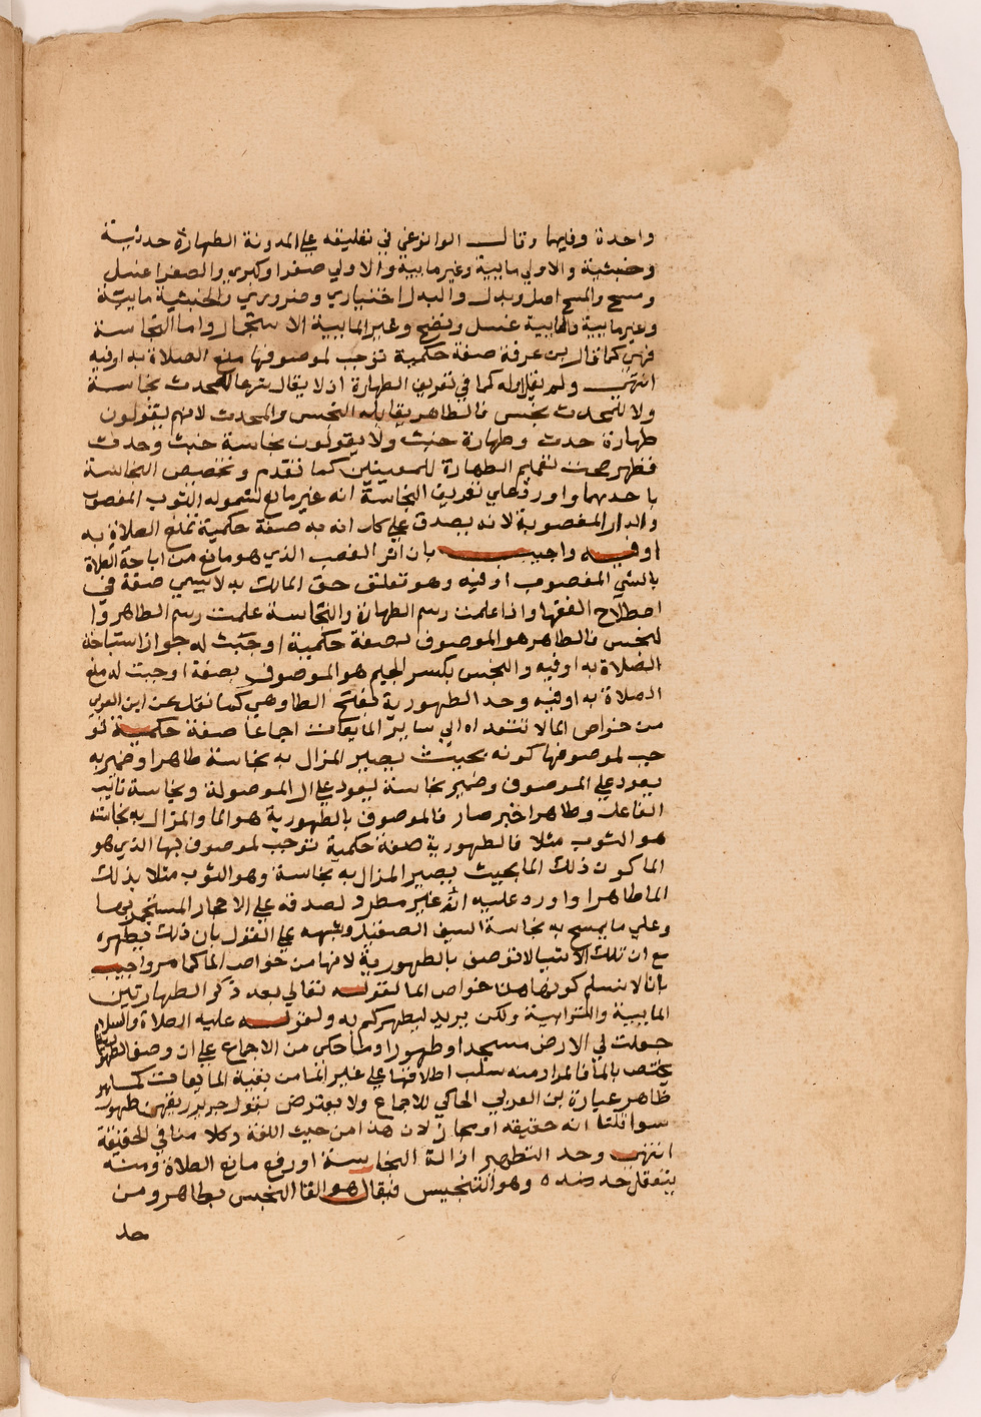 واحدة وفيهما وقال الوانوغي في تعليقه علي المدونة الطهارة حدثية
وخبثية والاولي مايية وغير مايية والاولي صغرا وكبري والصغرا غسل
ومسح والمسح اصل وبدل والبدل اختياري وضروري والخبثية مايية
وغير مايية فالمايية غسل ونضح وغير المايية الاستجمار واما النجاسة
فهي كما قال بن عرفة صفة حكمية توجب لموصوفها منع الصلاة به او فيه
انتهي ولم يقل اوله كما في تعريف الطهارة اذ لا يقال شرعا للحدث نجاسة
ولا للمحدث نجس فالطاهر يقابله النجس والمحدث لانهم يقولون
طهارة حدث وطهارة خبث ولا يقولون نجاسة خبث وحدث
فظهر صحت تعميم الطهارة للمعنيين كما تقدم وتخصيص النجاسة
باحدهما واورد علي تعريف النجاسة انه غير مانع لشموله الثوب المغصوب
والدار المغصوبة لانه يصدق علي كل انه به صفة حكمية تمنع الصلاة به
او فيه واجيب بان اثر الغصب الذي هو مانع من اباحة الصلاة
بالشي المغصوب او فيه وهو تعلق حق المالك به لا يسمي صفة في
اصطلاح الفقها واذا علمت رسم الطهارة والنجاسة علمت رسم الطاهر وا
لنجس فالطاهر هو الموصوف بصفة حكمية اوجبت له جواز استباحة
الصلاة به او فيه والنجس بكسر الجيم هو الموصوف بصفة اوجبت له منع
الصلاة به او فيه وحد الطهورية بفتح الطا وهي كما نقل عن ابن العربي
من خواص الما لا تتعداه الي ساير المايعات اجماعا صفة حكمية تو
جب لموصوفها كونه بحيث يصير المزال به نجاسة طاهرا وضمير به
يعود علي الموصوف وضمير نجاسة يعود علي ال الموصولة ونجاسة نايب
الفاعل وطاهرا خبر صار فالموصوف بالطهورية هو الما والمزال به نجاسته
هو الثوب مثلا فالطهورية صفة حكمية توجب لموصوف بها الذي هو
الما كون ذلك الما بحيث يصير المزال به نجاسة وهو الثوب مثلا بذلك
الما طاهرا واورد عليه انه غير مطرد لصدقه علي الاحجار المستجمر بها
وعلي ما يمسح به نجاسة السيف الصقيل وشبهه علي القول بان ذلك يطهره
مع ان تلك الاشيا لا توصف بالطهورية لانها من خواص الما كما مر واجيب
بانا لا نسلم كونها من خواص الما لقوله تعالي بعد ذكر الطهارتين
المايية والترابية ولكن يريد ليطهركم به ولقوله عليه الصلاة والسلام
جعلت لي الارض مسجدا وطهورا وما حكي من الاجماع علي ان وصف الطهورية
يختص بالما فالمراد منه سلب اطلاقها علي غير الما من بقية المايعات كما هو
ظاهر عبارة بن العربي الحاكي للاجماع ولا يعترض بقول جرير ريقهن طهور
سوا قلنا انه حقيقه او مجاز لان هذا من حيث اللغة وكلامنا في الحقيقة
انتهي وحد التطهير ازالة النجاسة او رفع مانع الصلاة ومنه
يتعقل حد ضده وهو التنجيس فيقال هو القا النجس بطاهر ومن
حد